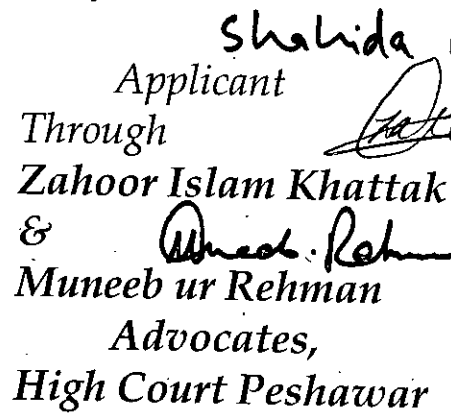 Shahida
Applicant
Through
Zahoor Islam Khattak
&
Muneeb. Rehm
Muneeb ur Rehman
Advocates,
High Court Peshawar